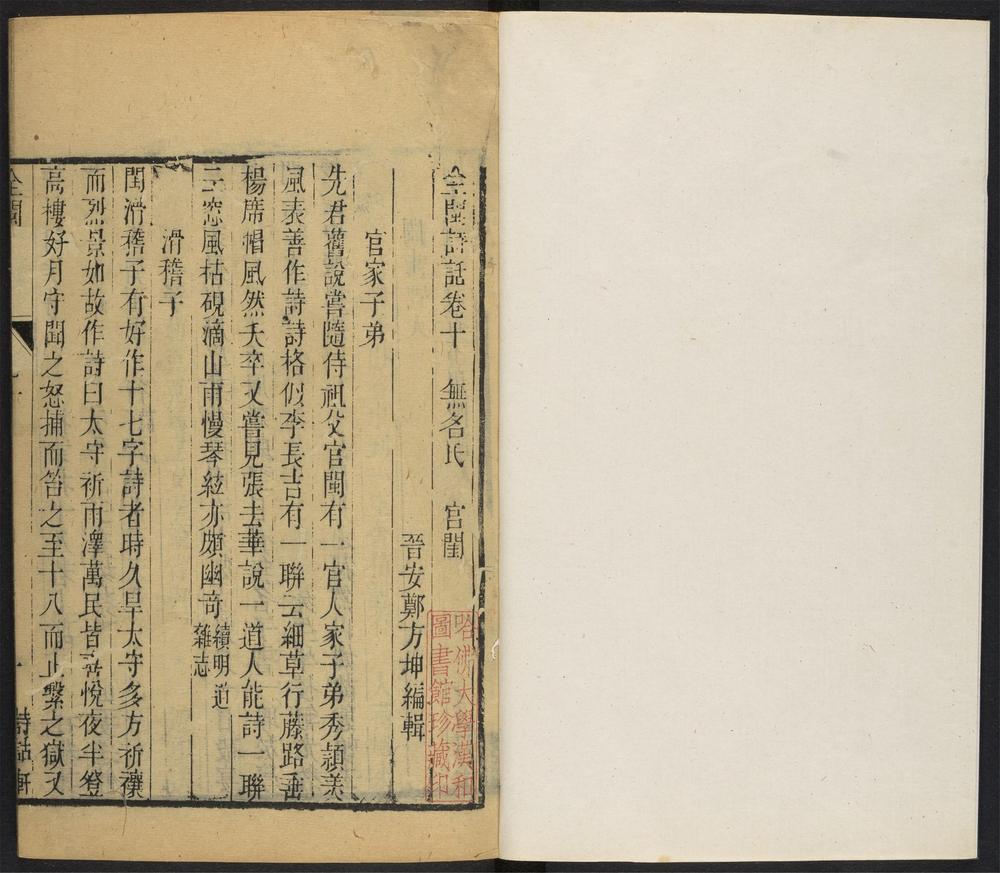 全閩詩話卷十　無名氏　宮閨
晉安鄭方坤編輯
官家子弟
先君舊說嘗隨侍祖父官閩有一官人家子弟秀頴美
風表善作詩詩格似李長吉有一聯云細草行藤路垂
楊席帽風然夭卒又嘗見張去華說一道人能詩一聯
云窓風枯硯滴山雨慢琴絃亦頗幽奇續明道
雜志
滑稽子
閩滑稽子有好作十七字詩者時久旱太守多方祈禳
而烈景如故作詩曰太守祈雨澤萬民皆喜悅夜半登
高樓好月守聞之怒捕而笞之至十八而止繫之獄又
全閩
詩話軒
哈佛大學漢和
圖書館珍藏印